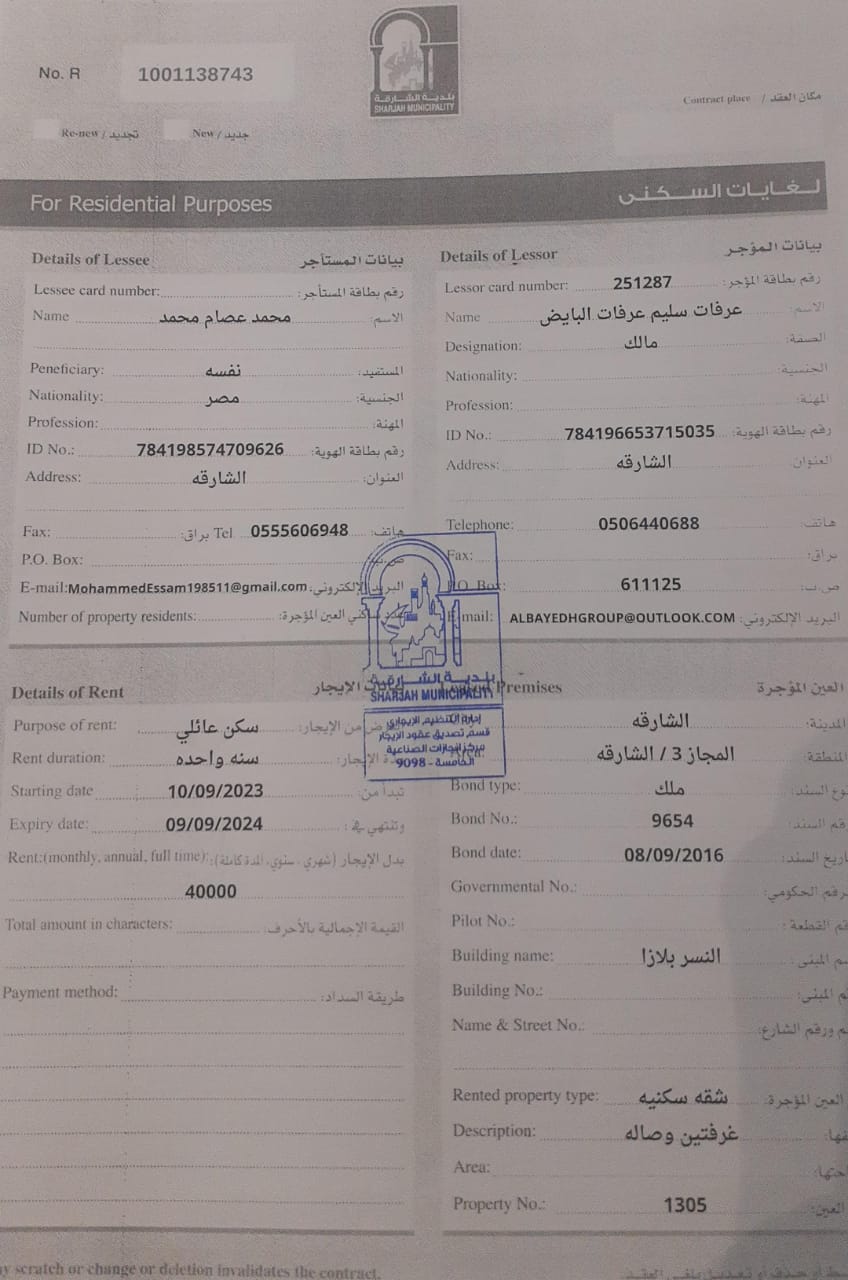 No. R 1001138743
بلدية الشارقة
SHARJAH MUNICIPALITY
Contract place / مكان العقد
Re-new / تجديد New / جديد
For Residential Purposes لغايات السكنى
Details of Lessee بيانات المستأجر
Lessee card number: رقم بطاقة المستأجر:
Name محمد عصام محمد الاسم:
Peneficiary: نفسه المستفيد:
Nationality: مصر الجنسية:
Profession: المهنة:
ID No.: 784198574709626 رقم بطاقة الهوية:
Address: الشارقه العنوان:
Fax: براق: Tel 0555606948 هاتف:
P.O. Box: ص.ب:
E-mail: MohammedEssam198511@gmail.com البريد الإلكتروني:
Number of property residents: ني العين المؤجرة:
Details of Lessor بيانات المؤجر
Lessor card number: 251287 رقم بطاقة المؤجر:
Name عرفات سليم عرفات البايض الاسم:
Designation: مالك الصفة:
Nationality: الجنسية:
Profession: المهنة:
ID No.: 784196653715035 رقم بطاقة الهوية:
Address: الشارقه العنوان:
Telephone: 0506440688 هاتف:
Fax: براق:
P.O. Box: 611125 ص.ب:
mail: ALBAYEDHGROUP@OUTLOOK.COM البريد الإلكتروني:
بلدية الشارقة
SHARJAH MUNICIPALITY
إدارة التنظيم الإيجاري
قسم تصديق عقود الإيجار
مركز إنجازات الصناعية
الخامسة - 9098
Details of Rent الإيجار
Purpose of rent: سكن عائلي من الإيجار:
Rent duration: سنه واحده الإيجار:
Starting date 10/09/2023 تبدأ من:
Expiry date: 09/09/2024 وتنتهي في:
Rent:(monthly, annual, full time): بدل الإيجار (شهري، سنوي، المدة كاملة):
40000
Total amount in characters: القيمة الإجمالية بالأحرف:
Payment method: طريقة السداد:
Premises العين المؤجرة
الشارقه المدينة:
المجاز 3 / الشارقه المنطقة:
Bond type: ملك نوع السند:
Bond No.: 9654 رقم السند:
Bond date: 08/09/2016 تاريخ السند:
Governmental No.: رقم الحكومي:
Pilot No.: قم القطعة:
Building name: النسر بلازا سم المبنى:
Building No.: م المبنى:
Name & Street No.: م ورقم الشارع:
Rented property type: شقه سكنيه العين المؤجرة:
Description: غرفتين وصاله فها:
Area: احتها:
Property No.: 1305 العين:
y scratch or change or deletion invalidates the contract.